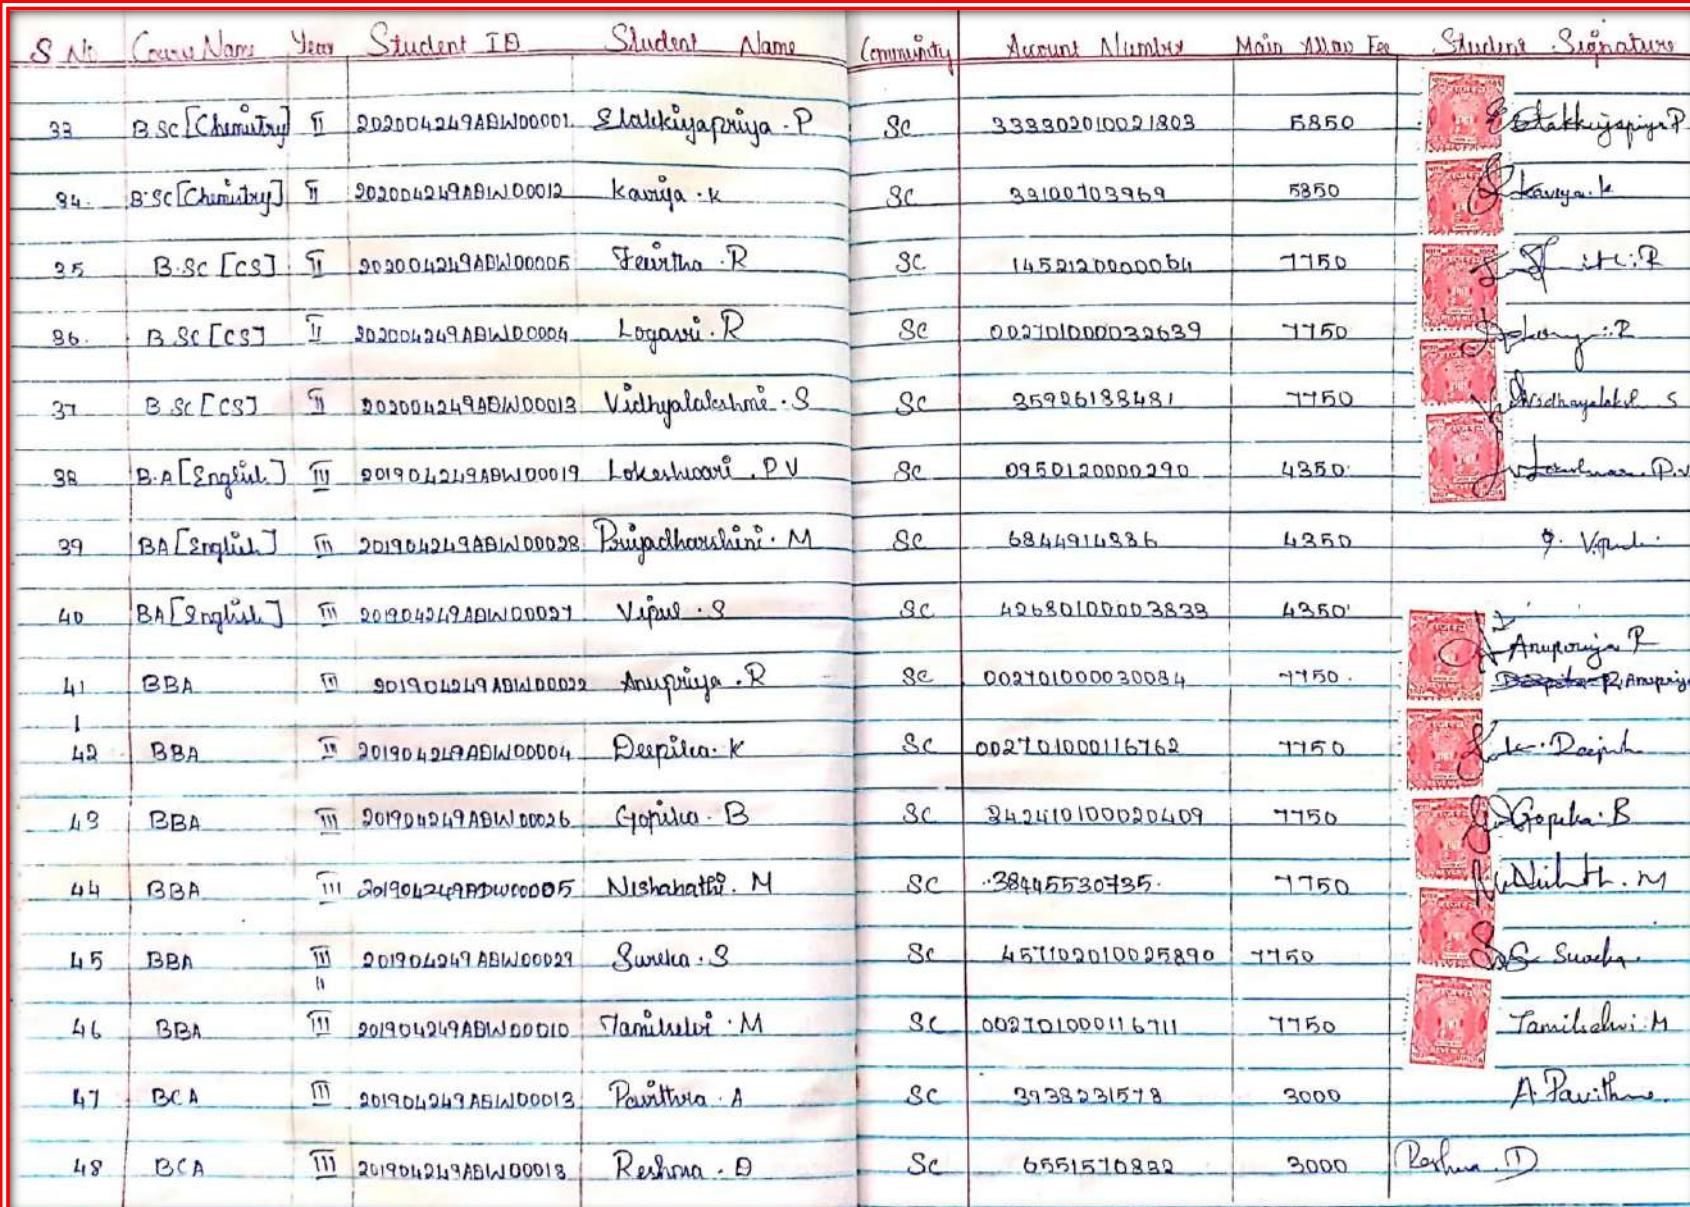 S No Course Name Year Student ID Student Name Community Account Number Main Allow Fee Student Signature
33 B.Sc [Chemistry] II 202004249ABW00001 Elakkiyapriya . P SC 333302010021803 5850 Elakkiyapriya P
34. B.Sc [Chemistry] II 202004249ABW00012 Kaviya . K SC 39100703969 5850 Kaviya . K
35 B.Sc [CS] II 202004249ABW00005 R SC 1452120000064 7750
36. B.Sc [CS] II 202004249ABW00004 Logavi . R SC 002701000032639 7750
37 B.Sc [CS] II 202004249ABW00013 Vidhyalakshmi . S SC 35926188481 7750 S
38 B.A [English] III 201904249ABW00019 Lokeshwari . P V SC 0950120000290 4350. P.V
39 BA [English] III 201904249ABW00028 Priyadharshini . M SC 6844914886 4350
40 BA [English] III 201904249ABW00027 Vipul . S SC 426801000003833 4350
41 BBA III 201904249ABW00022 Anupriya . R SC 002701000030084 7750. Anupriya R
R. Anupriya
42 BBA III 201904249ABW00004 Deepika . K SC 002701000116762 7750 K. Deepik
43 BBA III 201904249ABW00026 Gopika . B SC 342410100020409 7750 Gopika . B
44 BBA III 201904249ABW00005 Nishanathi . M SC 38445530735. 7750 M
45 BBA III 201904249ABW00029 Sureka . S SC 457102010025890 7750 S. Sureka.
46 BBA III 201904249ABW00010 Tamilselvi . M SC 002701000116711 7750 Tamilselvi . M
47 BCA III 201904249ABW00013 Pavithra . A SC 3938231578 3000 A. Pavithra.
48 BCA III 201904249ABW00018 Reshma . D SC 6551570832 3000 Reshma . D